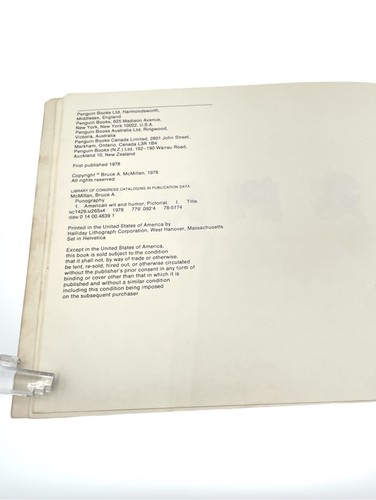 Penguin Books Ltd, Harmondsworth,
Middlesex, England
Penguin Books, 625 Madison Avenue,
New York, New York 10022, U.S.A.
Penguin Books Australia Ltd, Ringwood,
Victoria, Australia
Penguin Books Canada Limited, 2801 John Street,
Markham, Ontario, Canada L3R 1B4
Penguin Books (N.Z.) Ltd, 182–190 Wairau Road,
Auckland 10, New Zealand
First published 1978
Copyright © Bruce A. McMillan, 1978
All rights reserved
LIBRARY OF CONGRESS CATALOGING IN PUBLICATION DATA
McMillan, Bruce A.
Punography
1. American wit and humor, Pictorial. I. Title.
NC1429.M265A4 1978 779'.092'4 78-5174
ISBN 0 14 00.4839 1
Printed in the United States of America by
Halliday Lithograph Corporation, West Hanover, Massachusetts
Set in Helvetica
Except in the United States of America,
this book is sold subject to the condition
that it shall not, by way of trade or otherwise,
be lent, re-sold, hired out, or otherwise circulated
without the publisher's prior consent in any form of
binding or cover other than that in which it is
published and without a similar condition
including this condition being imposed
on the subsequent purchaser